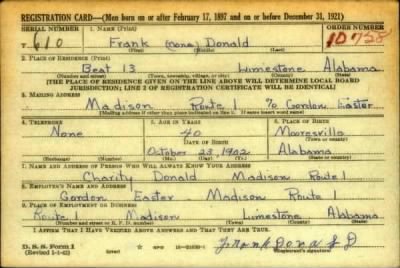 REGISTRATION CARD—(Men born on or after February 17, 1897 and on or before December 31, 1921)
SERIAL NUMBER 1. NAME (Print) ORDER NUMBER
T 610 Frank (none) Donald 10758
(First) (Middle) (Last)
2. PLACE OF RESIDENCE (Print)
Beat 13 Limestone Alabama
(Number and street) (Town, township, village, or city) (County) (State)
[THE PLACE OF RESIDENCE GIVEN ON THE LINE ABOVE WILL DETERMINE LOCAL BOARD
JURISDICTION; LINE 2 OF REGISTRATION CERTIFICATE WILL BE IDENTICAL]
3. MAILING ADDRESS
Madison Route 1 % Gordon Easter
[Mailing address if other than place indicated on line 2. If same insert word same]
4. TELEPHONE 5. AGE IN YEARS 6. PLACE OF BIRTH
None 40 Mooresville
DATE OF BIRTH (Town or county)
October 23, 1902 Alabama
(Exchange) (Number) (Mo.) (Day) (Yr.) (State or country)
7. NAME AND ADDRESS OF PERSON WHO WILL ALWAYS KNOW YOUR ADDRESS
Charity Donald Madison Route 1
8. EMPLOYER'S NAME AND ADDRESS
Gordon Easter Madison Route 1
9. PLACE OF EMPLOYMENT OR BUSINESS
Route 1 Madison Limestone Alabama
(Number and street or R. F. D. number) (Town) (County) (State)
I AFFIRM THAT I HAVE VERIFIED ABOVE ANSWERS AND THAT THEY ARE TRUE.
D. S. S. Form 1
(Revised 1-1-42) GPO 16—21630-1 Frank Donald
(Registrant's signature)